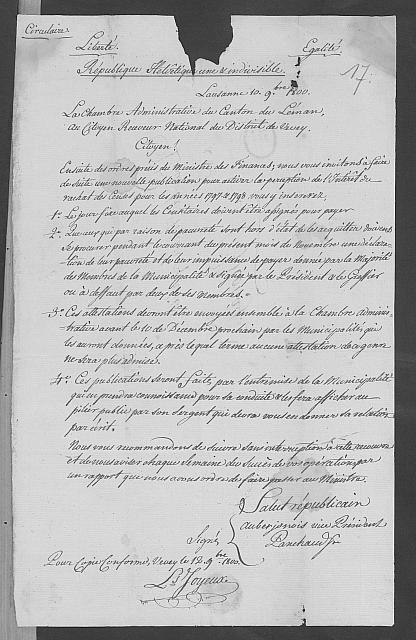 Circulaire
Liberté. Egalité.
17.
République Helvétique une & indivisible.
Lausanne 10. 9.bre 1800.
La Chambre Administrative du Canton du Léman,
au Citoyen Receveur National du District de Vevey.
Citoyen!
Ensuite des ordres précis du Ministre des Finances, nous vous invitons à faire
de suite une nouvelle publication pour activer la perception de l'Intérêt du
rachat des Censes pour les années 1797 & 1798 vous y insererez,
1.° Le jour fixe auquel les Censitaires doivent être assignés pour payer
2.° Que ceux qui par raison de pauvreté sont hors d'état de les acquitter doivent
se procurer pendant le courant du présent mois de Novembre une déclara
tion de leur pauvreté & de leur impuissance de payer donnée par la Majorité
des Membres de la Municipalité & signée par le Président & le Greffier
ou à deffaut par deux de ses membres.
3.° Ces attestations devront être envoyées ensemble à la Chambre adminis-
trative avant le 10 de Decembre prochain par les Municipalités qui
les auront données, après lequel terme aucune attestation de ce genre
ne sera plus admise.
4.° Ces publications seront faites par l'entremise de la Municipalité
qui en prendra connoissance pour sa conduite & les fera afficher au
pilier public par son sergent qui devra vous en donner sa relation
par écrit.
Nous vous recommandons de suivre sans interruption à cette recouvre
et de nous aviser chaque semaine du succès de vos opérations par
un rapport que nous avons ordre de faire passer au Ministre.
Salut républicain
Auberjonois vice Président
Signé Panchaud Sr
Pour Copie Conforme, Vevey le 12. 9.bre 1800.
Ls Joyeux